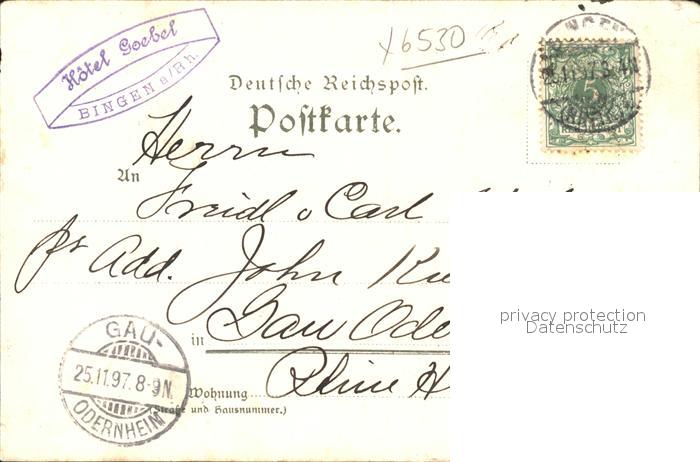 Hôtel Goebel
BINGEN a/Rh.
6530
Deutsche Reichspost.
Postkarte.
Herrn
An
Freidl o Carl
pr Add. John
in Gau Ode
GAU-
25.11.97. 8-9N.
ODERNHEIM
Wohnung
(Straße und Hausnummer.)
privacy protection
Datenschutz